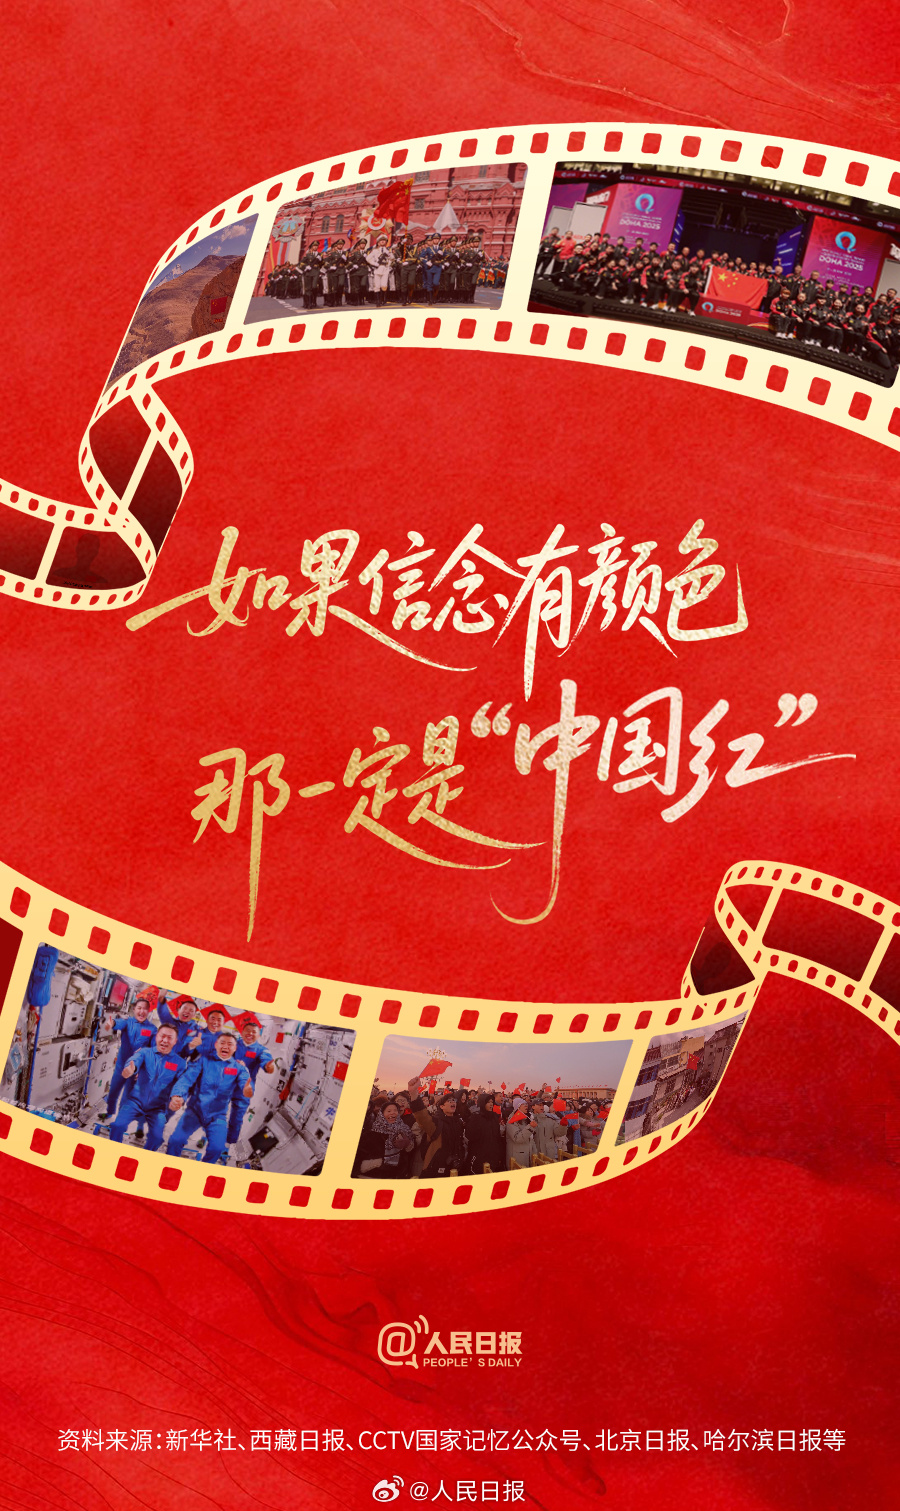 DOHA 2025
DOHA 2025
如果信念有颜色
那一定是“中国红”
@人民日报
PEOPLE'S DAILY
资料来源:新华社、西藏日报、CCTV国家记忆公众号、北京日报、哈尔滨日报等
@人民日报